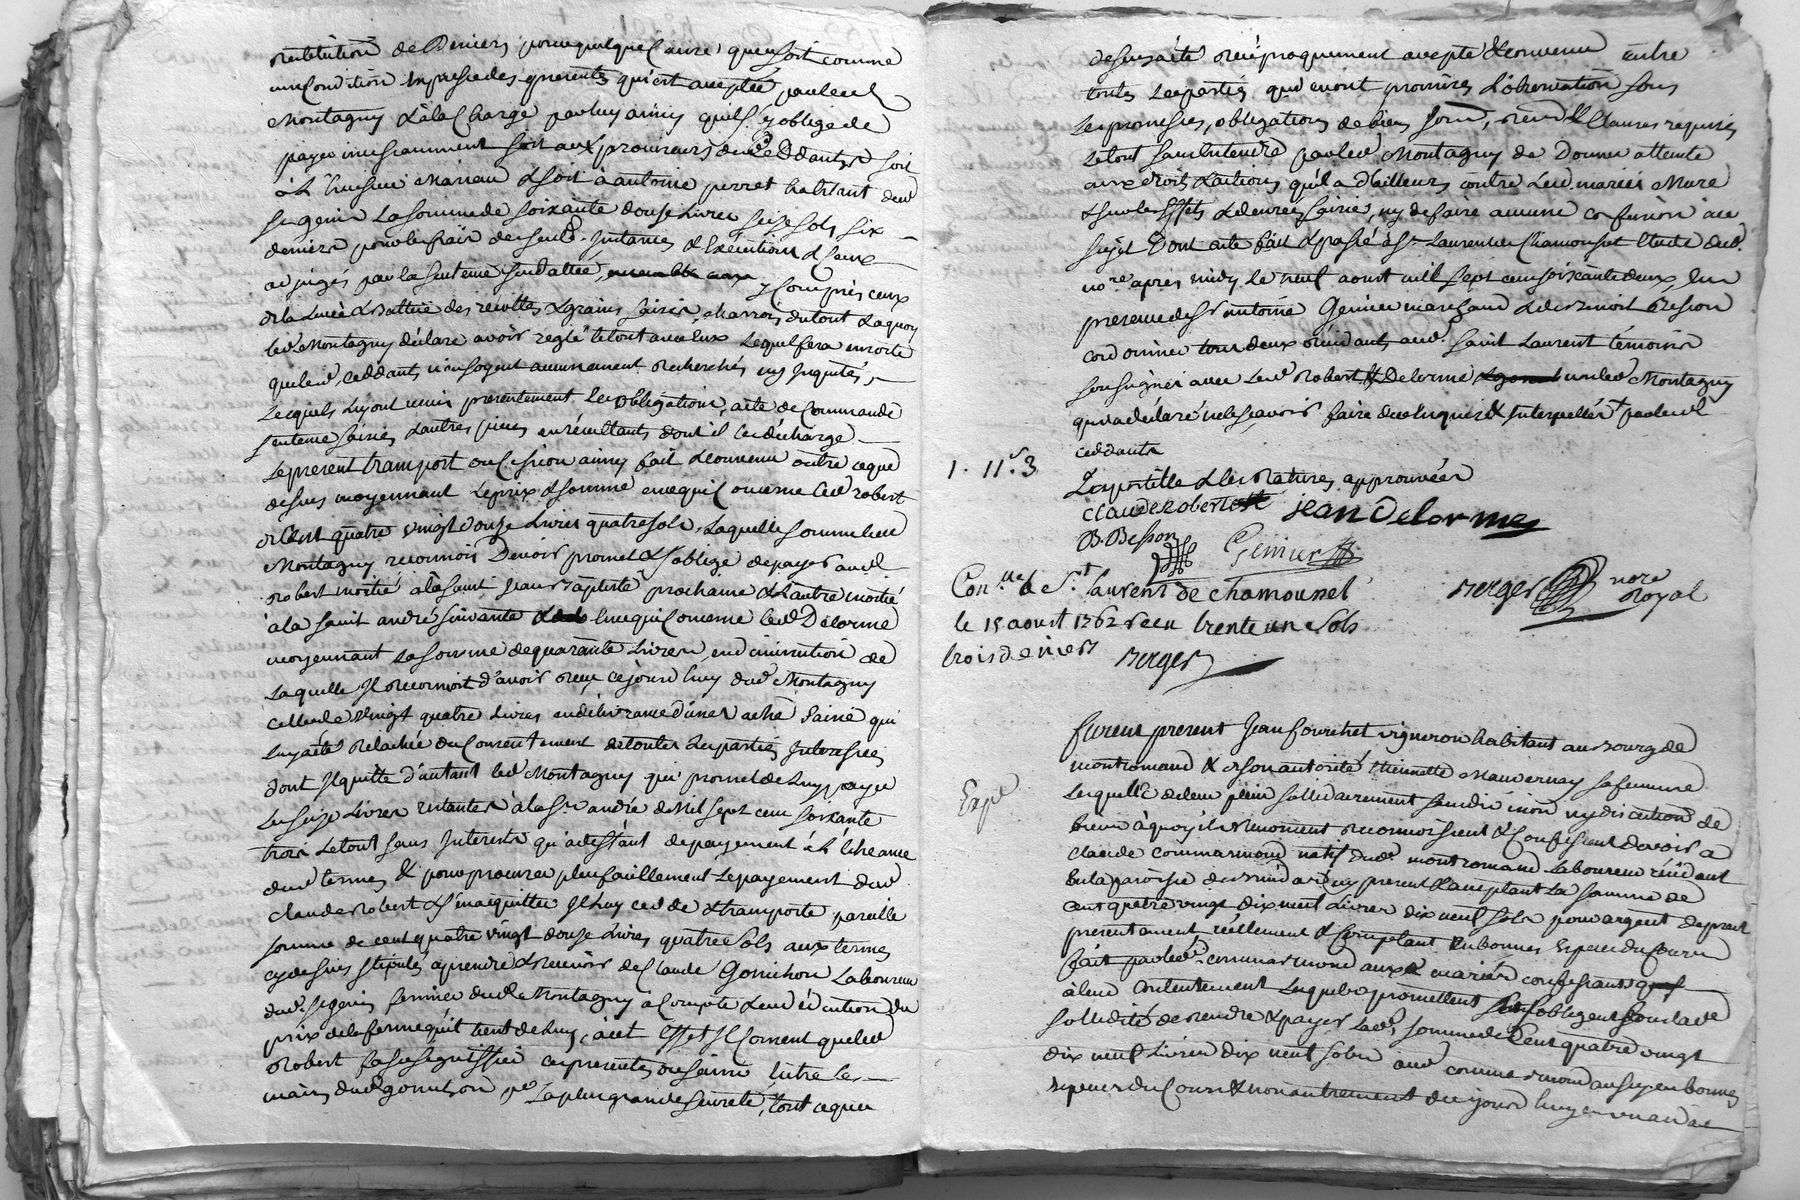 restitution de Deniers pour quelque Cause que ce soit comme
une Condition Expresse des presentes qui est acceptée par led
Montagny & à la Charge par luy ainsy qu'il s'y oblige de
payer incessamment soit aux procureurs desd. Ceddants soit
à l'huissier Marieu & soit à antoine perret habitant dud
St genis La somme de soixante douse Livres seize sols six
deniers pour les frais de sentce. Instances & Execution & ceux
adjugés par la sentence susdattée, y Compris ceux
de la Levée & Batture des recoltes & grains saisis charrois du tout & a quoy
led. Montagny declare avoir reglé le tout avec eux Lequel fera en sorte
que lesd. ceddants n'en soyent aucunement recherchés ny Inquietés,
Lesquels luy ont remis presentement Les obligations, acte de Commande
sentence saisies & autres pieces en resultants dont il les décharge
Le present transport ou Cession ainsy fait & convenu outre ce que
dessus moyennant Le prix & somme en ce qui Concerne led. robert
de Cent quatre vingt douse Livres quatre sols, Laquelle somme led
Montagny reconnois Devoir promet & s'oblige de payer aud
robert moitié à la saint Jean Baptiste prochaine & L'autre moitié
à la saint andré suivante & En ce qui Concerne led. Delorme
moyennant La somme de quarante Livres, en diminution de
Laquelle Il reconnoit d'avoir reçu cejourd'huy dud Montagny
celle de Vingt quatre Livres en délivrance d'une vache saisie qui
luy a été Relachée du Consentement de toutes Les parties Interessées
dont Il quitte d'autant led Montagny qui promet de luy payer
Les seize Livres restantes à la St. andré de Mil sept cent soixante
trois Le tout sans Interests qu'à deffaut de payement à L'échéance
dud. termes & pour procurer plus facillement Le payement dud.
Claude Robert & s'en acquitter Il luy cedde & transporte pareille
somme de cent quatre vingt douse Livres quatre Sols aux termes
cy dessus stipulés à prendre & recevoir de Claude Gonichon Laboureur
dud. St genis fermier dud. Montagny à Compte & en déduction du
prix de la ferme qu'il tient de luy, à cet Effet Il Consent que led
Robert fasse signiffier ces presentes ou saisir Entre les
mains dud. gonichon pr. La plus grande seureté, tout ce que
dessus a été reciproquement accepté & convenu entre
toutes Les parties qui en ont promis L'observation sous
Les promesses, obligations de biens soum, renon & Clauses requises
Le tout sans Entendre par led. Montagny se Donner atteinte
aux droits & actions qu'il a D'ailleurs contre Lesd. mariés Mure
& sur les Effets & denrées saisies, ny de faire aucune confusion à ce
sujet Dont acte fait & passé à St. Laurent de Chamousset Etude dud.
nore. apres midy Le neuf aoust mil sept cent soixante deux, En
presence de Sr. antoine Genier marchand & de Benoit Besson
cordonnier tous deux residants aud. saint Laurent témoins
soussignés avec Lesd. Robert & Delorme non led Montagny
qui a déclaré ne le sçavoir faire de ce Enquis & Interpellés + par lesd
ceddants
L'apostille & les Ratures approuvées
1. 11s. 3
claude Robert
jean Delorme
B. Besson
Genier
Berger nore Royal
Conlle. à St. Laurent de chamousset
le 15 aoust 1762 Reçu trente un Sols
trois deniers
Berger
furent present Jean fourchet vigneron habitant au Bourg de
montromand & de son autorité thiennette Mauvernay sa femme
Expé
Lesquels de leur plein sollidairement sans division ny discution de
biens à quoy ils Renoncent reconnoissent & Confessent devoir à
Claude commarmond natif dud. montromand Laboureur résidant
En la paroisse de present & acceptant La somme de
cent quatre vingt dix neuf Livres dix neuf sols pour argent de prest
presentement réellement & Comptant En bonnes Especes du Cours
fait par led. commarmond aux mariés confessants
à leur Contentement Lesquels promettent s'obligent sous lad
sollidité de rendre & payer Lad. somme de Cent quatre vingt
dix neuf Livres dix neuf sols aud commarmond aussy en bonnes
especes du Cours & non autrement de ce jourd'huy en un an